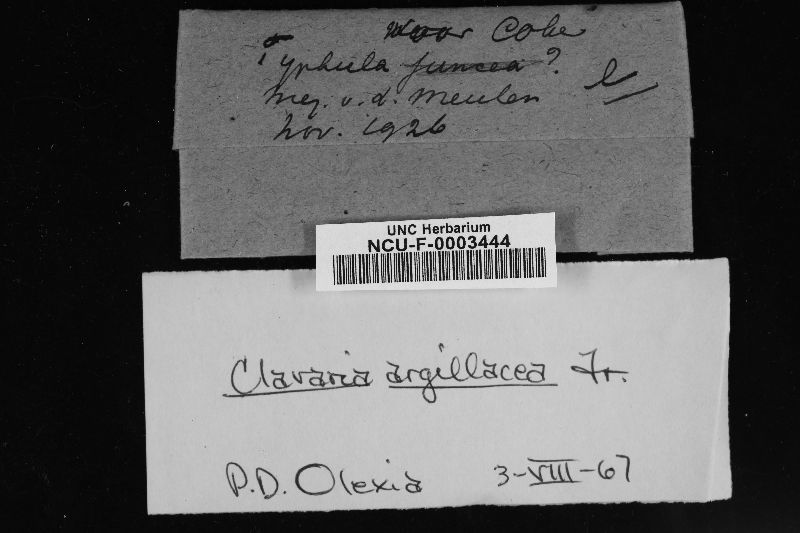 voor Coker
Typhula juncea ?
Mej. v. d. Meulen
Nov. 1926
UNC Herbarium
NCU-F-0003444
Clavaria argillacea Fr.
P.D. Olexia 3-VIII-67